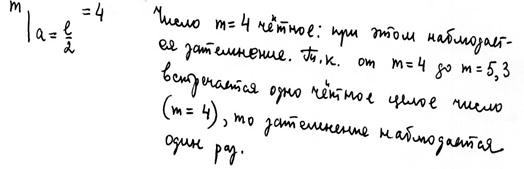 m|a = ℓ/2 = 4
Число m = 4 чётное: при этом наблюдает-
ся затемнение. Т.к. от m = 4 до m = 5,3
встречается одно чётное целое число
(m = 4), то затемнение наблюдается
один раз.